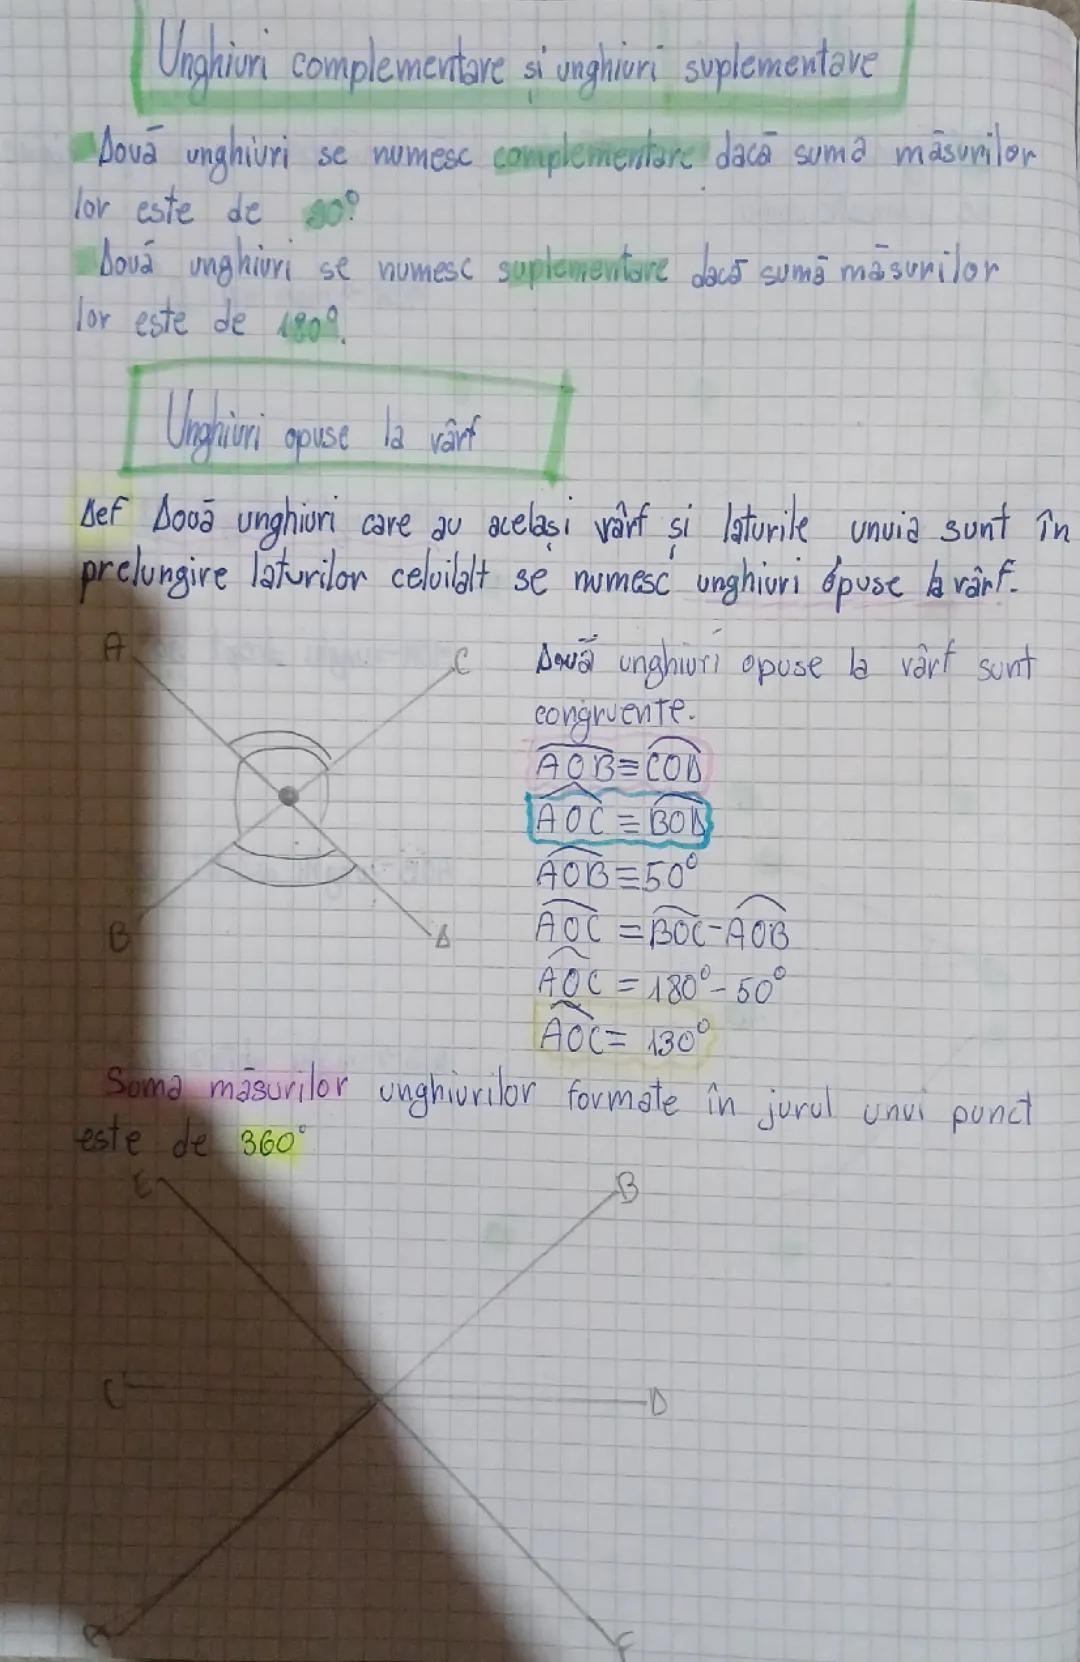 Unghiuri complementare și unghiuri suplementare
Două unghiuri se numesc complementare dacă suma măsurilor
lor este de 90°
Două unghiuri se numesc suplementare dacă sumă măsurilor
lor este de 180°.
Unghiuri opuse la vârf
Def Două unghiuri care au același vârf și laturile unuia sunt în
prelungire laturilor celuilalt se numesc unghiuri opuse la vârf.
A
C
Două unghiuri opuse la vârf sunt
congruente.
AOB≡COD
AOC≡BOD
AOB=50°
B
D
AOC=BOC-AOB
AOC=180°-50°
AOC=130°
Soma măsurilor unghiurilor formate în jurul unui punct
este de 360°
E
B
C
D
A
F